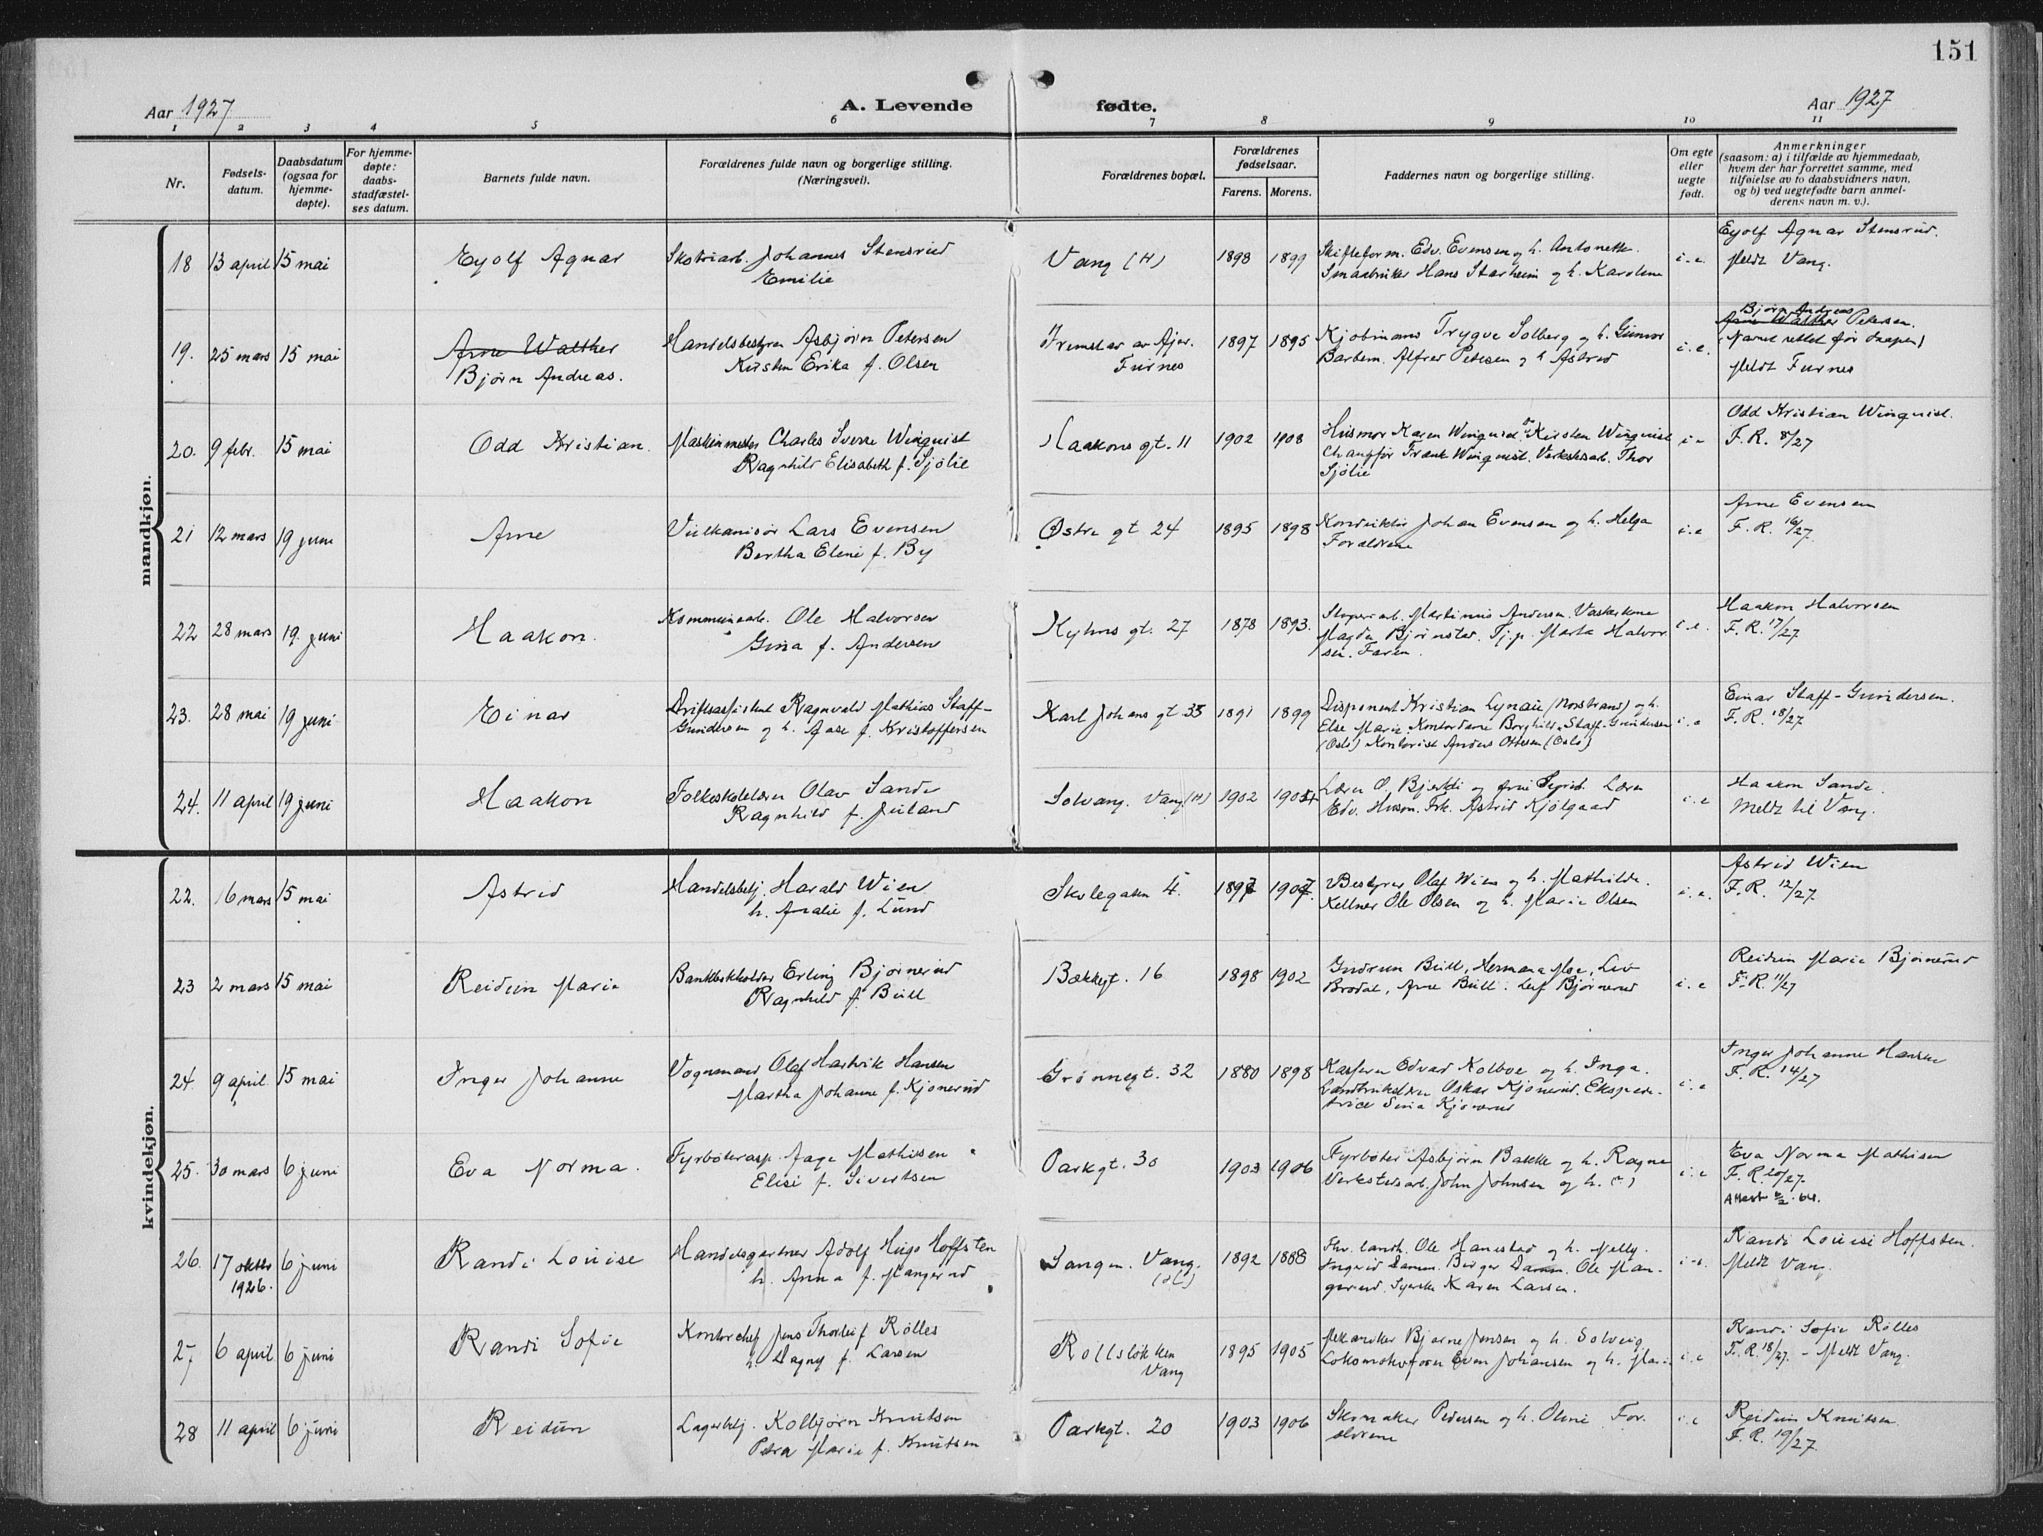 151
Aar 1927
A. Levende fødte.
Aar 1927
1 2 3 4 5 6 7 8 9 10 11
Nr.
Fødsels-
datum.
Daabsdatum
(ogsaa for
hjemme-
døpte).
For hjemme-
døpte:
daabs-
stadfæstel-
ses datum.
Barnets fulde navn.
Forældrenes fulde navn og borgerlige stilling.
(Næringsvei).
Forældrenes bopæl.
Forældrenes
fødselsaar.
Farens. Morens.
Faddernes navn og borgerlige stilling.
Om egte
eller
uegte
født.
Anmerkninger
(saasom: a) i tilfælde av hjemmedaab,
hvem der har forrettet samme, med
tilføielse av to daabsvidners navn,
og b) ved uegtefødte barn anmel-
derens navn m. v.).
mandkjøn.
18 13 april 15 mai Eyolf Agnar
Skotriarb. Johannes Stensrud
Emilie
Vang (H) 1898 1899
Skifteform. Edv. Evensen og h. Antonette
Smaabruker Hans Starheim og h. Karoline
i. e.
Eyolf Agnar Stensrud.
Meldt Vang.
19. 25 mars 15 mai
Arne Walther
Bjørn Andreas.
Handelsbestyrer Asbjørn Petersen
Kirsten Erika f. Olsen
Fremstad av Ajer.
Furnes
1897 1895
Kjøbmand Trygve Solberg og h. Gunvor
Barberm. Alfred Petersen og h. Astrid
i. e.
Bjørn Andreas
Arne Walther Petersen.
(Navnet rettet før daapen)
Meldt Furnes
20. 9 febr. 15 mai Odd Kristian.
Maskinmester Charles Sverre Winquist
Ragnhild Elisabeth f. Sjölie
Haakons gt. 11 1902 1908
Husmor Karen Winquist og Kirsten Winquist
Chauffør Frank Winquist. Verkstedarb. Thor
Sjölie
i e
Odd Kristian Winquist.
F. R. 8/27
21 12 mars 19 juni Arne
Vulkanisør Lars Evensen
Bertha Eline f. By
Østre gt 24 1895 1898
Konduktør Johan Evensen og h. Helga
Forældrene
i. e
Arne Evensen
F. R. 16/27.
22 28 mars 19. juni Haakon.
Kommunearb. Ole Halvorsen
Gina f. Andersen
Kyhns gt. 27 1878 1893.
Støperarb. Martinius Andersen. Vaskerkone
Magda Bjørnstad. Tj.p. Marta Halvor-
sen. Faren.
i. e.
Haakon Halvorsen
F. R. 17/27
23. 28 mai 19 juni Einar
Driftsassistent Ragnvald Mathias Staff-
Gundersen og h. Aase f. Kristoffersen
Karl Johans gt 35 1891 1899
Disponent Kristian Lynaie (Norstrand) og h.
Else Marie. Kontordame Borghild Staff-Gundersen
(Oslo) Kontorist Anders Ottesen (Oslo)
i. e
Einar Staff-Gundersen.
F. R. 18/27
24. 11 april 19 juni Haakon
Folkeskolelærer Olav Sande
Ragnhild f. Juland
Solvang. Vang (H) 1902 1904
Lærer O. Bjerke og frue Sigrid. Lærer
Edv. Husom. Frk. Astrid Kjølgaard
i. e
Haakon Sande.
Meldt til Vang.
kvindekjøn.
22. 16 mars 15 mai Astrid
Handelsbetj. Harald Wien
h. Amalie f. Lund
Skolegaten 4. 1897 1907.
Bestyrer Olaf Wien og h. Mathilde.
Kellner Ole Olsen og h. Marie Olsen
i. e.
Astrid Wien
F. R. 12/27
23 2 mars 15 mai Reidun Marie
Bankbokholder Erling Bjørnerud
Ragnhild f. Bull
Bækkegt. 16 1898 1902
Gudrun Bull, Hermana Moe, Liv
Brodal, Arne Bull. Leif Bjørnerud
i. e
Reidun Marie Bjørnerud
F. R. 11/27
24. 9 april 15 mai Inger Johanne
Vognmand Olaf Hartvik Hansen
Martha Johanne f. Kjønerud
Grønnegt. 32 1880 1898
Kasserer Edvard Kolboe og h. Inga.
Landbrukslærer Oskar Kjønerud. Ekspedi-
trice Signe Kjønerud
i. e
Inger Johanne Hansen
F. R. 14/27
25. 30 mars 6 juni Eva Norma.
Fyrbøterasp. Aage Mathisen
Elise f. Sivertsen
Parkgt. 30 1903 1906
Fyrbøter Asbjørn Bakke og h. Ragna
Verkstedarb. John Johnsen og h. (")
i. e
Eva Norma Mathisen
F. R. 20/27.
Attest 64.
26. 17 oktbr 1926. 6 juni Randi Louise
Handelsgartner Adolf Hugo Hoffsten
h. Anna f. Mangerud
Sangen. Vang. (H) 1892 1888
Fhv. landh. Ole Hanestad og h. Nelly.
Ingrid Damm. Birger Damm. Ole Man-
gerud. Syerske Karen Larsen.
i. e.
Randi Louise Hoffsten.
Meldt Vang.
27 6 april 6 juni Randi Sofie
Kontorchef Jens Thorleif Rolles
h. Dagny f. Larsen
Rollsløkken
Vang
1895 1905
Mekaniker Bjarne Jensen og h. Solveig
Lokomotivfører Even Johansen og h. Marie
i. e
Randi Sofie Rolles
F. R. 18/27. - Meldt Vang.
28 11 april 6 juni Reidun
Lagerbetj. Kolbjørn Knutsen
Petra Marie f. Knutsen
Parkgt. 20 1903 1906
Skomaker Pedersen og h. Oline For-
ældrene
i. e
Reidun Knutsen.
F. R. 19/27